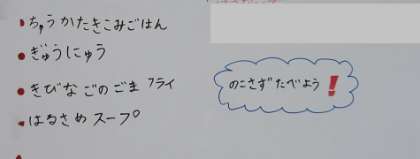 ちゅうかたきこみごはん
ぎゅうにゅう
きびなごのごまフライ
はるさめスープ
のこさずたべよう!